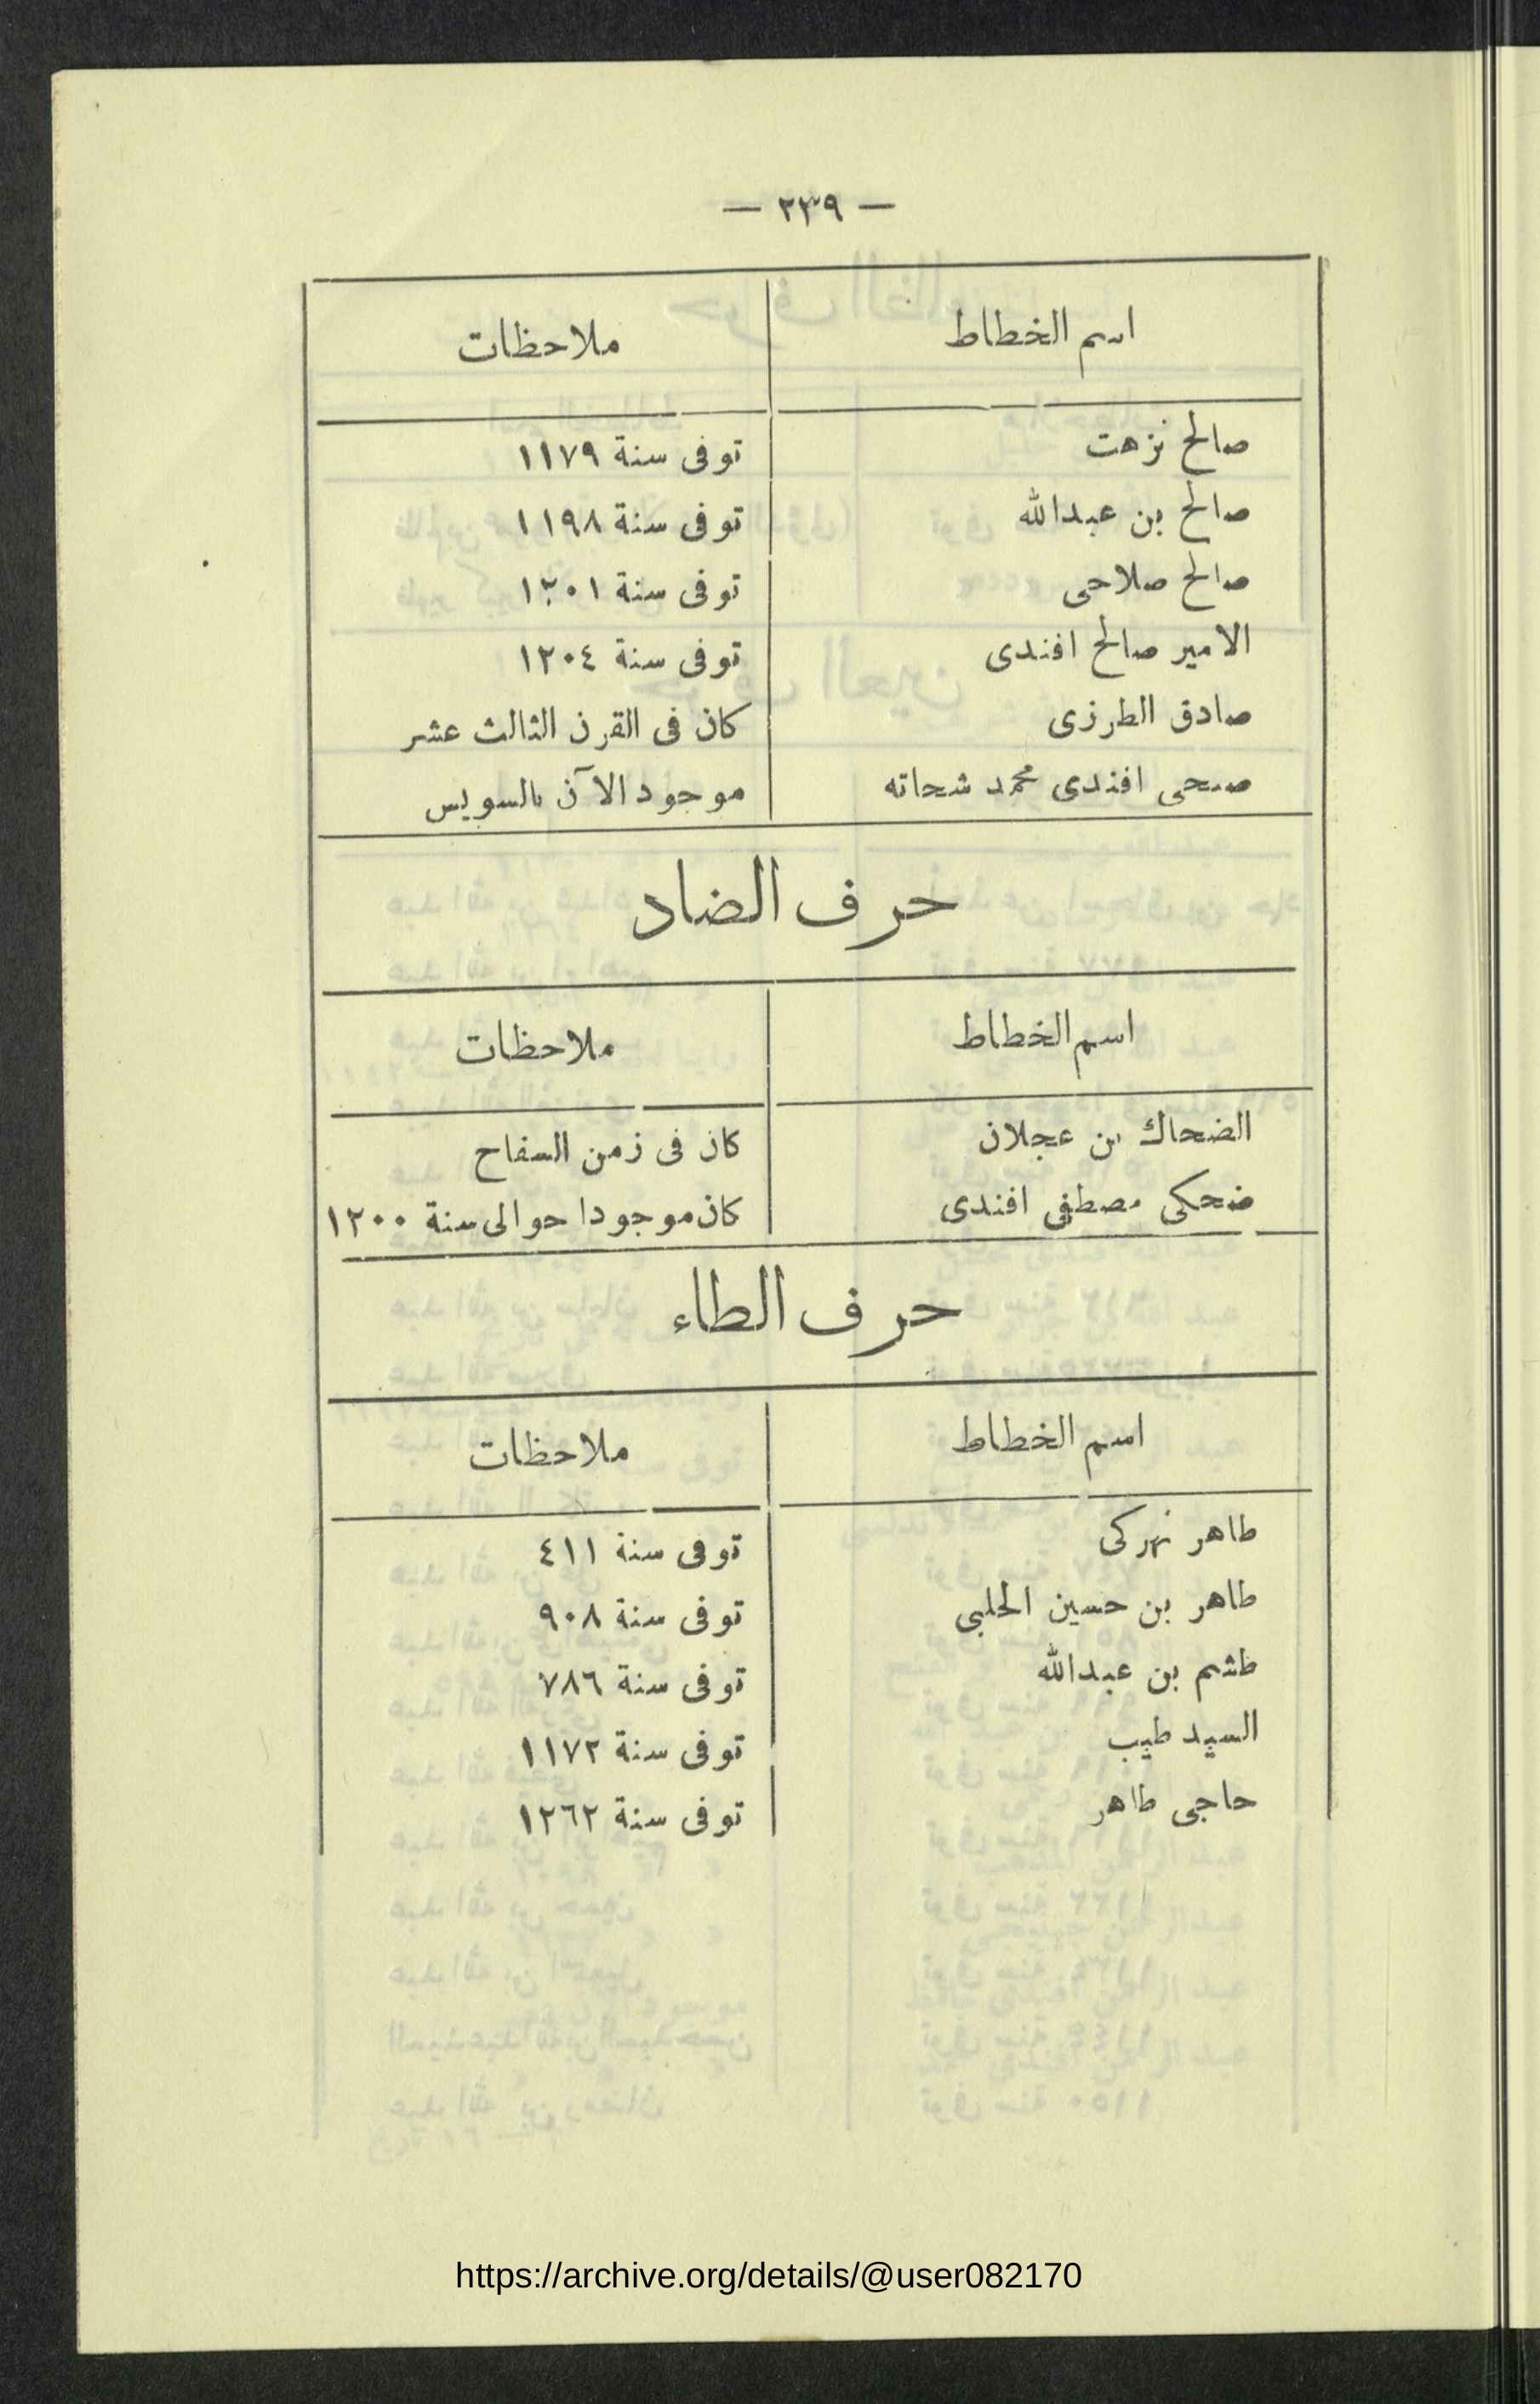 — ٢٣٩ —
اسم الخطاط ملاحظات
صالح نزهت توفى سنة ١١٧٩
صالح بن عبدالله توفى سنة ١١٩٨
صالح صلاحى توفى سنة ١٢٠١
الامير صالح افندى توفى سنة ١٢٠٤
صادق الطرزى كان فى القرن الثالث عشر
صبحى افندى محمد شحاته موجود الآن بالسويس
حرف الضاد
اسم الخطاط ملاحظات
الضحاك بن عجلان كان فى زمن السفاح
ضحكى مصطفى افندى كان موجودا حوالى سنة ١٢٠٠
حرف الطاء
اسم الخطاط ملاحظات
طاهر نهركى توفى سنة ٤١١
طاهر بن حسين الحلبى توفى سنة ٩٠٨
طشم بن عبدالله توفى سنة ٧٨٦
السيد طيب توفى سنة ١١٧٢
حاجى طاهر توفى سنة ١٢٦٢
https://archive.org/details/@user082170